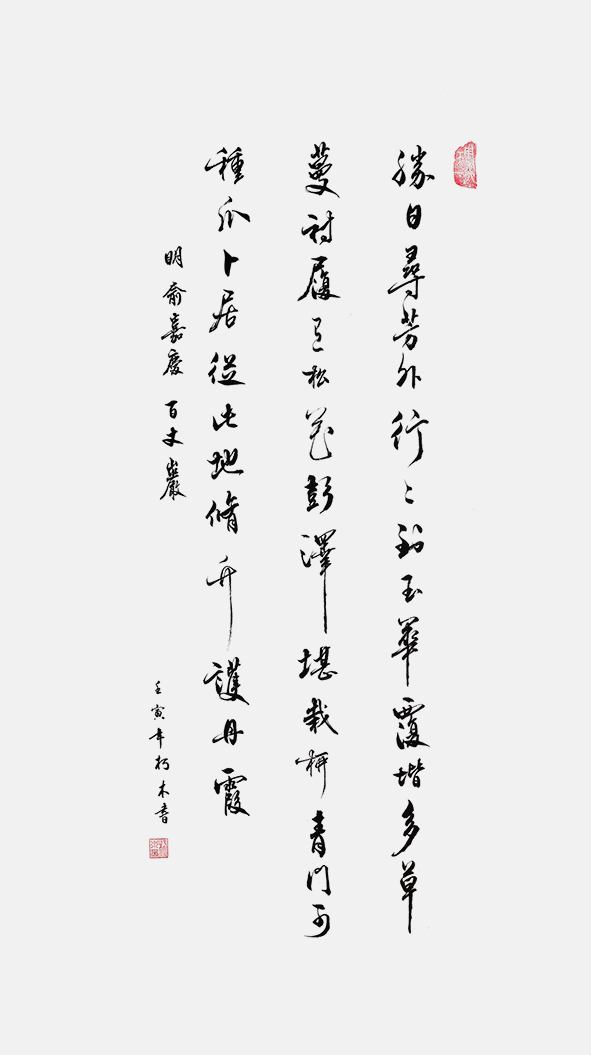 勝日尋芳外行〻到玉華覆堦多草
蔓衬履松花彭澤堪栽柳青門可
種瓜卜居從此地脩升護丹霞
明俞嘉慶百丈巖
壬寅年朽木書